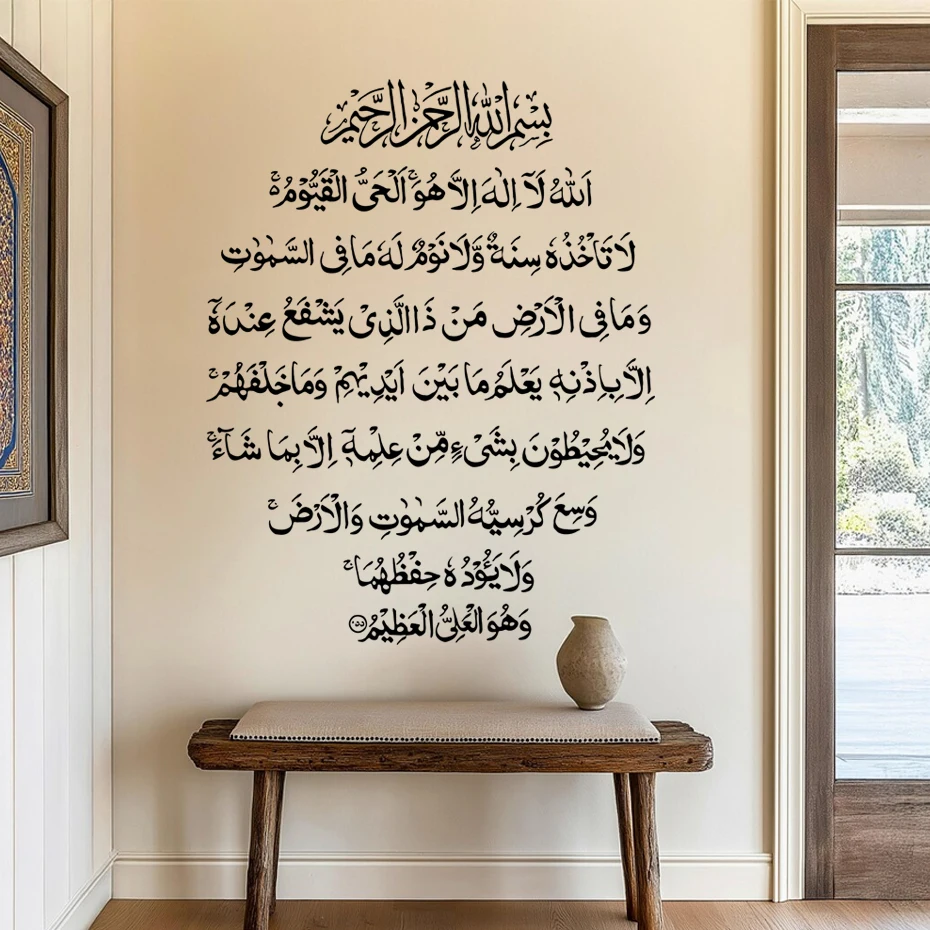 بِسْمِ اللهِ الرَّحْمٰنِ الرَّحِيْمِ
اَللهُ لَآ اِلٰهَ اِلَّا هُوَۚ اَلْحَیُّ الْقَيُّوْمُ ەۚ
لَا تَاْخُذُهٗ سِنَةٌ وَّلَا نَوْمٌ لَهٗ مَا فِی السَّمٰوٰتِ
وَمَا فِی الْاَرْضِ مَنْ ذَا الَّذِیْ يَشْفَعُ عِنْدَهٗٓ
اِلَّا بِاِذْنِهٖ يَعْلَمُ مَا بَيْنَ اَيْدِيْهِمْ وَمَا خَلْفَهُمْۚ
وَلَا يُحِيْطُوْنَ بِشَیْءٍ مِّنْ عِلْمِهٖٓ اِلَّا بِمَا شَآءَۚ
وَسِعَ كُرْسِيُّهُ السَّمٰوٰتِ وَالْاَرْضَۚ
وَلَا يَؤُدُهٗ حِفْظُهُمَاۚ
وَهُوَ الْعَلِیُّ الْعَظِيْمُ ۝٢٥٥